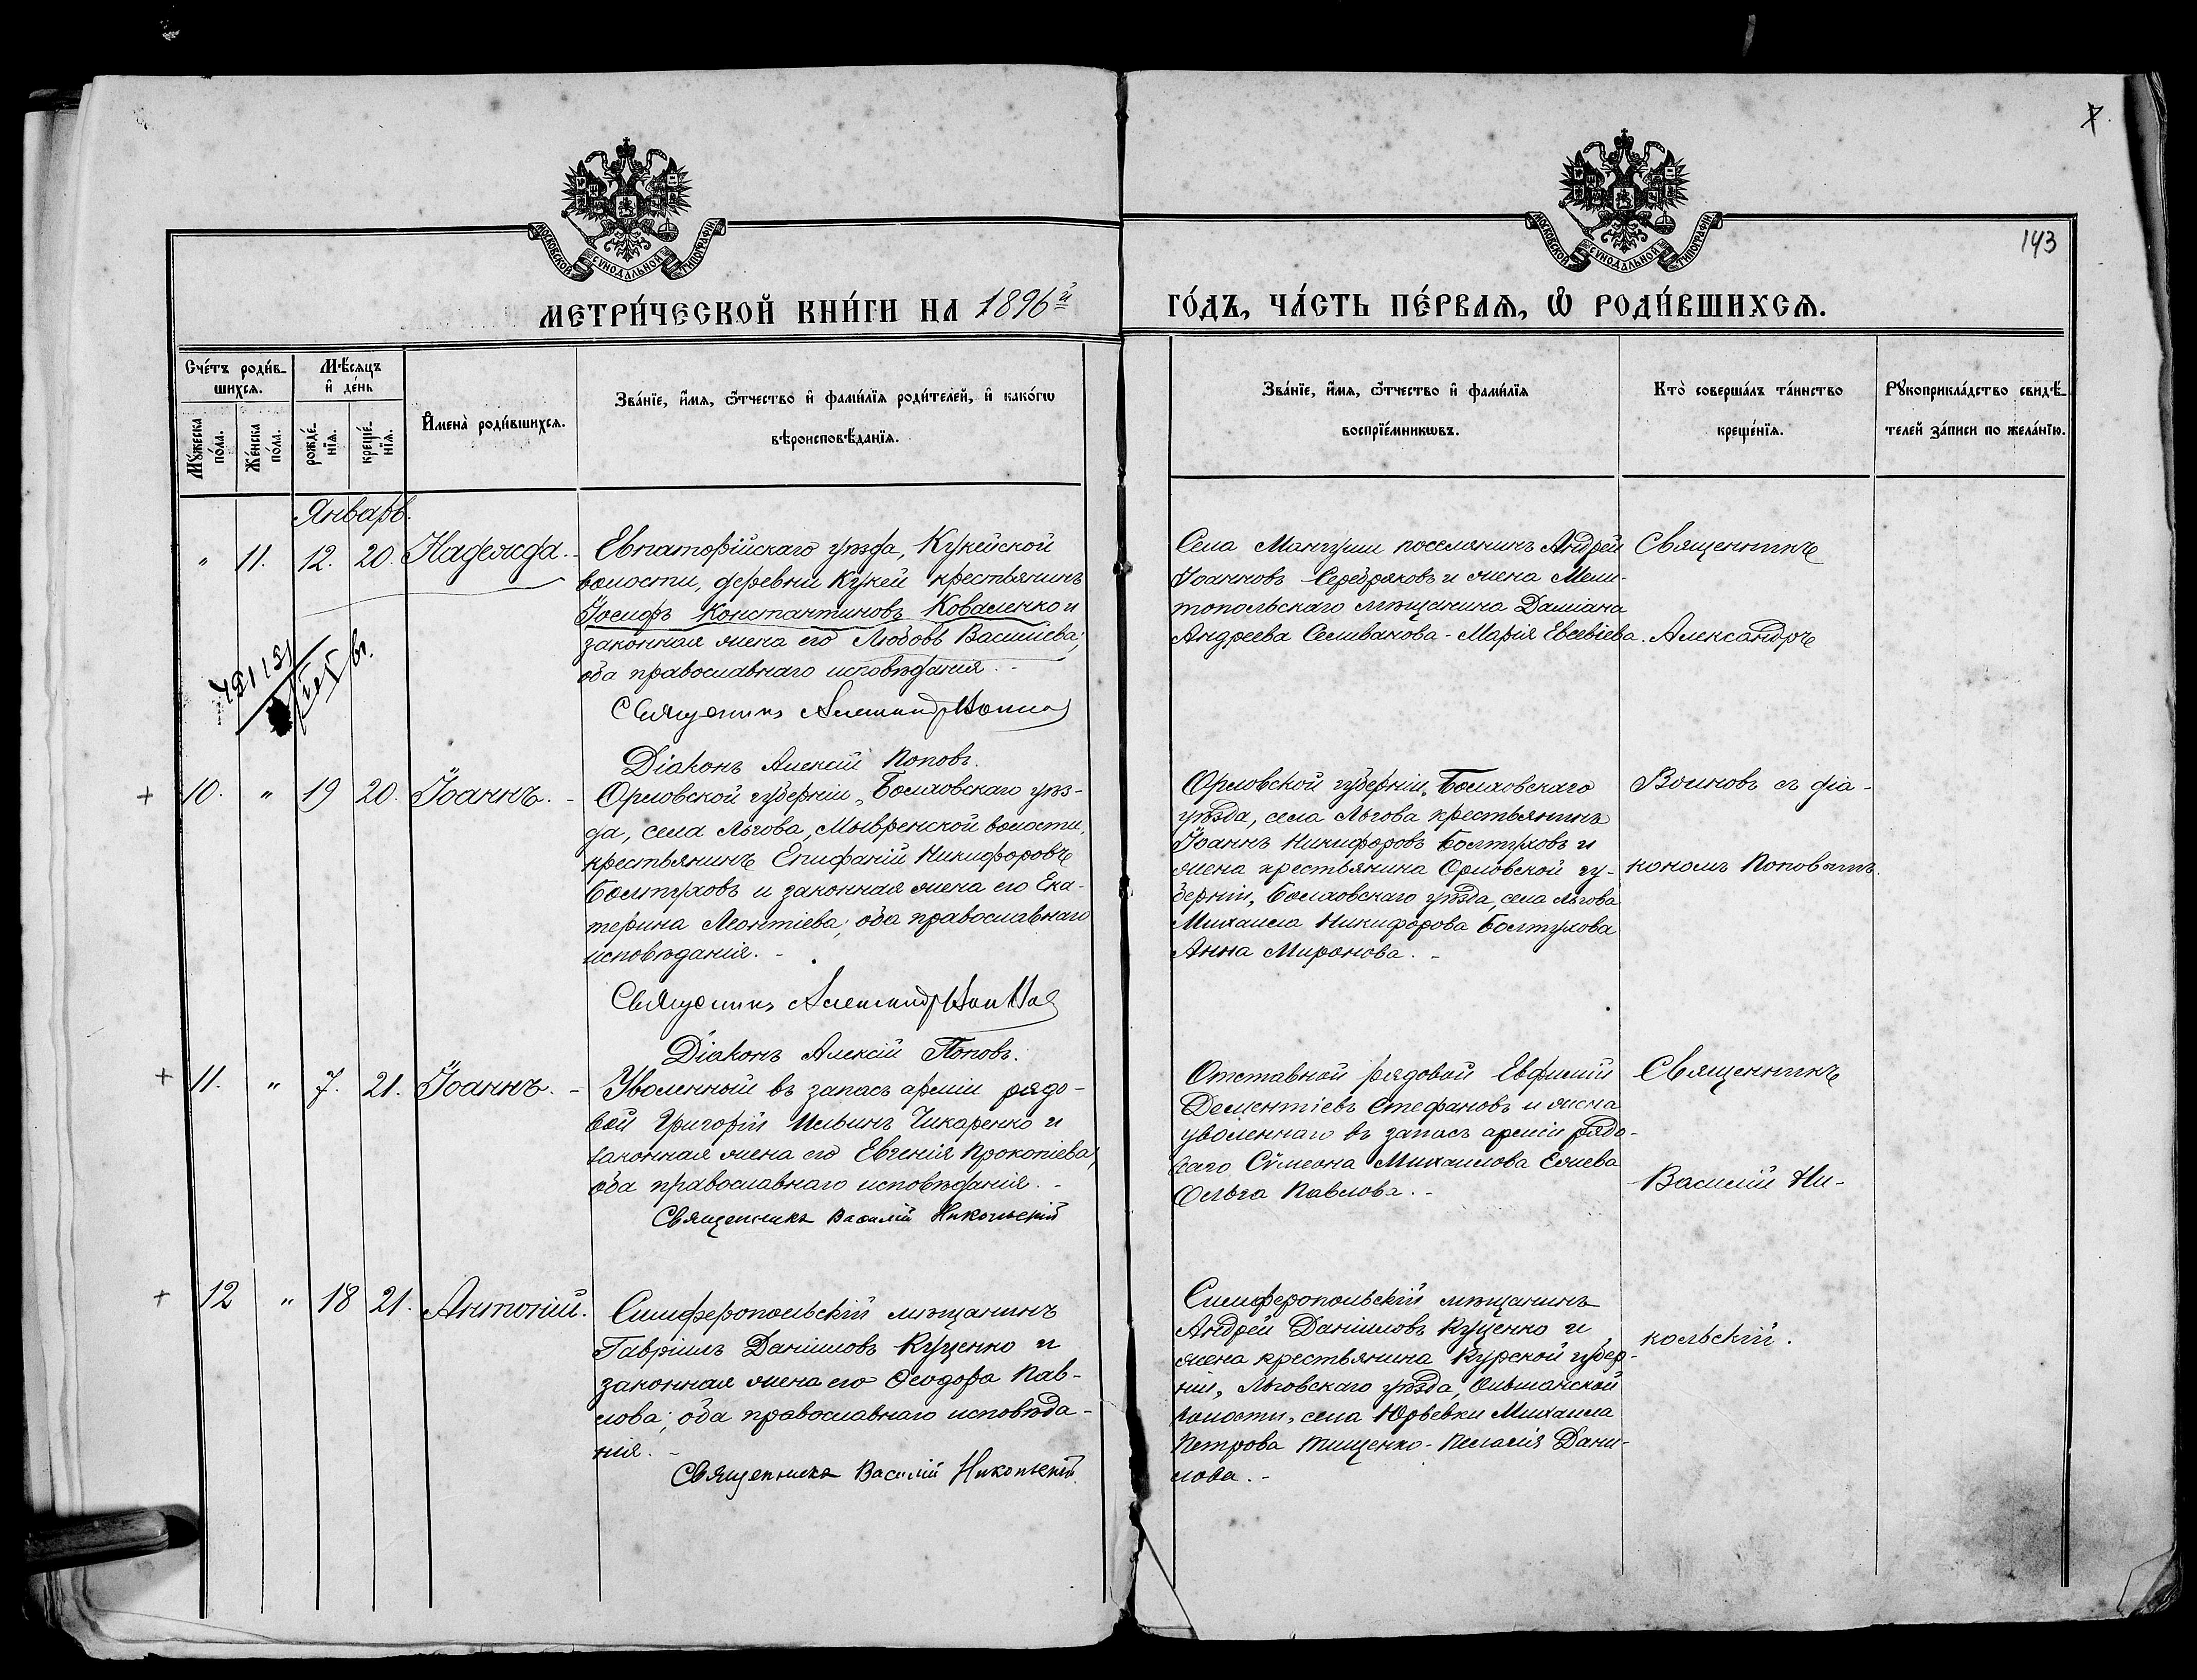 143
МОСКОВСКОЙ СѴНОДАЛЬНОЙ ТИПОГРАФІИ
МОСКОВСКОЙ СѴНОДАЛЬНОЙ ТИПОГРАФІИ
МЕТРИ́ЧЕСКОЙ КНИ́ГИ НА 1896й ГО́ДЪ, ЧА́СТЬ ПЕ́РВАѦ, Ѡ РОДИ́ВШИХСѦ.
Сче́тъ роди́в-
шихсѧ.
Мꙋ́жеска
по́ла.
Же́нска
по́ла.
Мѣ́сѧцъ
и҆ де́нь
рожде́-
нїѧ.
креще́-
нїѧ.
И҆мена̀ роди́вшихсѧ.
Зва́нїе, и҆́мѧ, ѻ҆́тчество и҆ фами́лїѧ роди́телей, и҆ како́гѡ
вѣроисповѣ́данїѧ.
Зва́нїе, и҆́мѧ, ѻ҆́тчество и҆ фами́лїѧ
воспрїе́мникѡвъ.
Кто̀ соверша́лъ та́инство
креще́нїѧ.
Рꙋкоприкла́дство свидѣ́-
телей за́писи по жела́нїю.
Январь.
" 11. 12. 20. Надежда. -
Евпаторійскаго уѣзда, Кукейской
волости, деревни Кукей крестьянинъ
Іосифъ Константиновъ Коваленко и
законная жена его Любовь Васильева;
оба православнаго исповѣданія. -
Священникъ Александръ Воиновъ
Діаконъ Алексій Поповъ.
Села Мангуши поселянинъ Андрей
Іоанновъ Серебряковъ и жена Мели-
топольскаго мѣщанина Даміана
Андреева Селиванова - Марія Евсевіева.
Священникъ
Александръ
10. " 19 20. Іоаннъ. -
Орловской губерніи, Болховскаго уѣз-
да, села Льгова, волости,
крестьянинъ Епифаній Никифоровъ
Болтуховъ и законная жена его Ека-
терина Леонтіева; оба православнаго
исповѣданія. -
Священникъ Александръ Воиновъ
Діаконъ Алексій Поповъ.
Орловской губерніи, Болховскаго
уѣзда, села Льгова крестьянинъ
Іоаннъ Никифоровъ Болтуховъ и
жена крестьянина Орловской гу-
берніи, Болховскаго уѣзда, села Льгова
Михаила Никифорова Болтухова
Анна Миронова. -
Воиновъ съ діа-
кономъ Поповымъ.
11. " 7. 21. Іоаннъ. -
Уволенный въ запасъ арміи рядо-
вой Григорій Ильинъ Чикаренко и
законная жена его Евгенія Прокопіева,
оба православнаго исповѣданія. -
Священникъ Василій Никольскій
Отставной рядовой Евфимій
Дементіевъ Стефановъ и жена
уволеннаго въ запасъ арміи рядо-
ваго Сѵмеона Михаилова
Ольга Павлова. -
Священникъ
Василій Ни-
12 " 18 21. Антоній.
Симферопольскій мѣщанинъ
Гавріилъ Даніиловъ Куценко и
законная жена его Ѳеодора Пав-
лова; оба православнаго исповѣда-
нія. -
Священникъ Василій Никольскій.
Симферопольскій мѣщанинъ
Андрей Даніиловъ Куценко и
жена крестьянина Курской губер-
ніи, Льговскаго уѣзда, Ольшанской
волости, села Юрьевки Михаила
Петрова Тищенко - Пелагія Дани-
лова. -
кольскій.